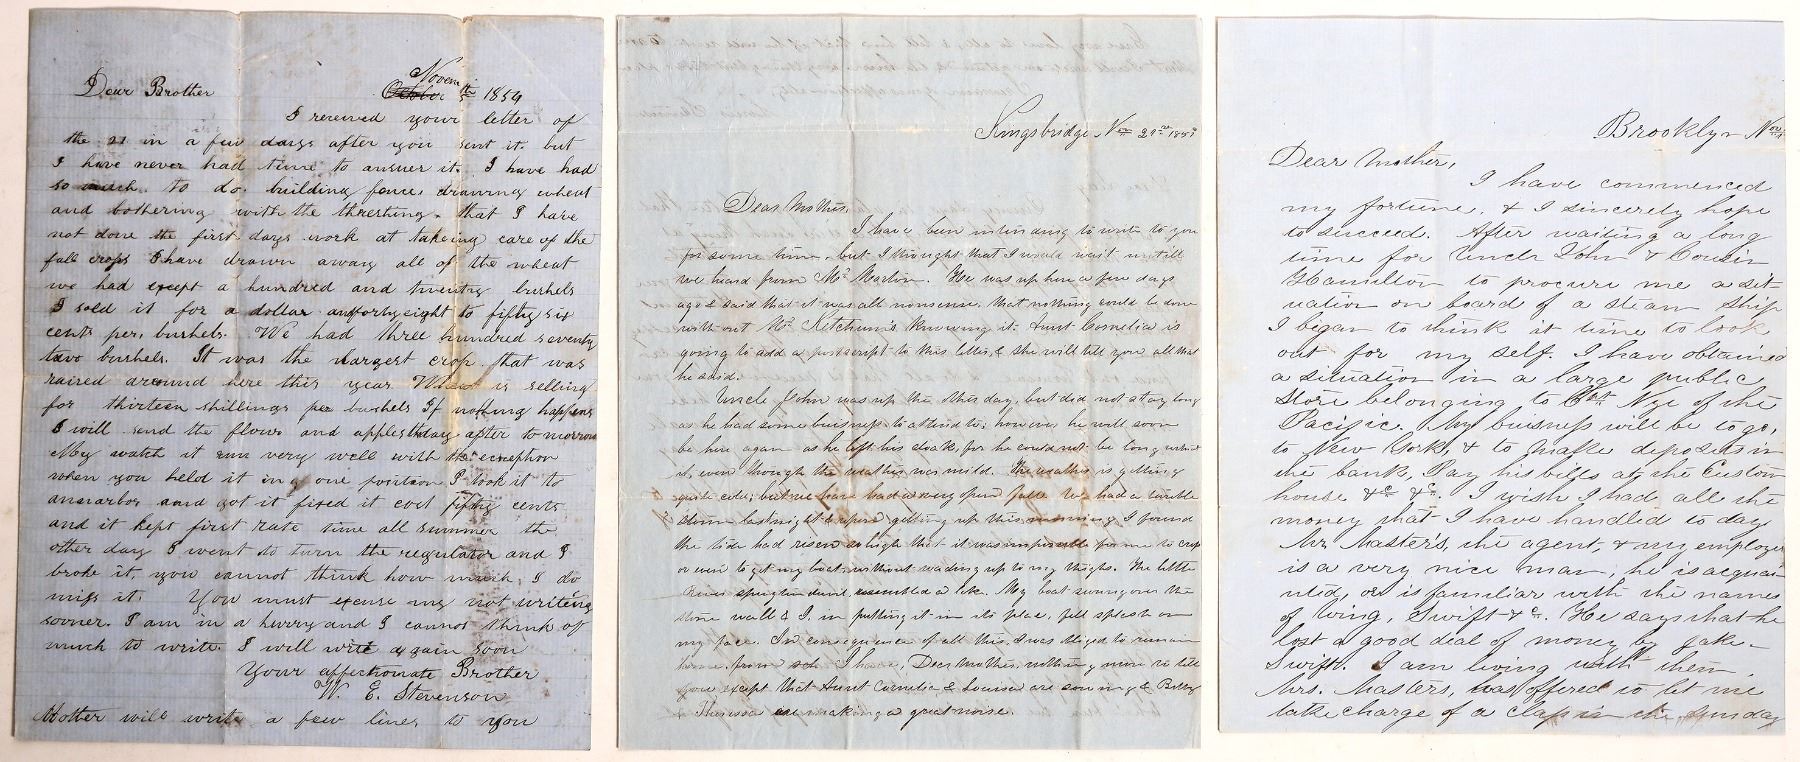 Dear Brother
Novem
October 5th 1854
I received your letter of
the 21 in a few days after you sent it. but
I have never had time to answer it. I have had
so much to do. building fence, drawing wheat
and bothering with the threshing. that I have
not done the first days work at takeing care of the
fall crops I have drawn away all of the wheat
we had except a hundred and twenty bushels
I sold it for a dollar and forty eight to fifty six
cents per, bushels. We had three hundred seventy
two bushels. It was the largest crop that was
raised around here this year is selling
for thirteen shillings per bushels If nothing happens
I will send the flour and apples day after to morrow
My watch it run very well with the exception
when you held it in one position I took it to
annarbor and got it fixed it cost fifty cents
and it kept first rate time all summer the
other day I went to turn the regulator and I
broke it, you cannot think how much I do
miss it. You must excuse my not writeing
sooner. I am in a hurry and I cannot think of
much to write. I will write again soon
Your affectionate Brother
W. E. Stevenson
Mother will write a few lines to you
Kingsbridge Nov 21st
Dear Mother,
I have been intending to write to you
for some time, but I thought that I would wait untill
we heard from Mr Martin. He was up here a few days
ago & said that it was all nonsense, that nothing could be done
without Mr Ketchum's knowing it. Aunt Cornelia is
going to add a postscript to this letter, & she will tell you all that
he said.
Uncle John was up the this day, but did not stay long
as he had some buisness to attend to; however he will soon
be here again as he left his cloak, for he could not be long without
it, even though the weather was mild. The weather is getting
quite cold; but we have had a very open fall. We had a terrible
storm last night & upon getting up this morning I found
the tide had risen so high that it was impossible for me to cross
or even to get my boat, without wading up to my thighs. The little
River spuyten duvil, resembled a lake. My boat swung over the
stone wall & I, in putting it in its place, fell splash on
my face. In consequence of all this, I was obliged to remain
home from I have, Dear Mother, nothing more to tell
you except that Aunt Cornelia & Louisa are sewing & Betsy
Theressa are making a great noise.
Brooklyn Nov
Dear Mother,
I have commenced
my fortune, & I sincerely hope
to succeed. After waiting a long
time for Uncle John & Cousin
Hamilton to procure me a sit-
uation on board of a steam ship
I began to think it time to look
out for my self. I have obtained
a situation in a large public
store belonging to Capt Nye of the
Pacific. My buisness will be to go,
to New York, & to make deposits in
the bank, Pay his bills at the Custom
house &c &c. I wish I had all the
money that I have handled to day
Mr Master's, the agent, & my employer
is a very nice man; he is acquain
nted, or is familiar with the names
of Wing, Swift &c. He says that he
lost a good deal of money by Jake-
Swift. I am living with them
Mrs. Masters, has offered to let me
take charge of a class in the Sunday